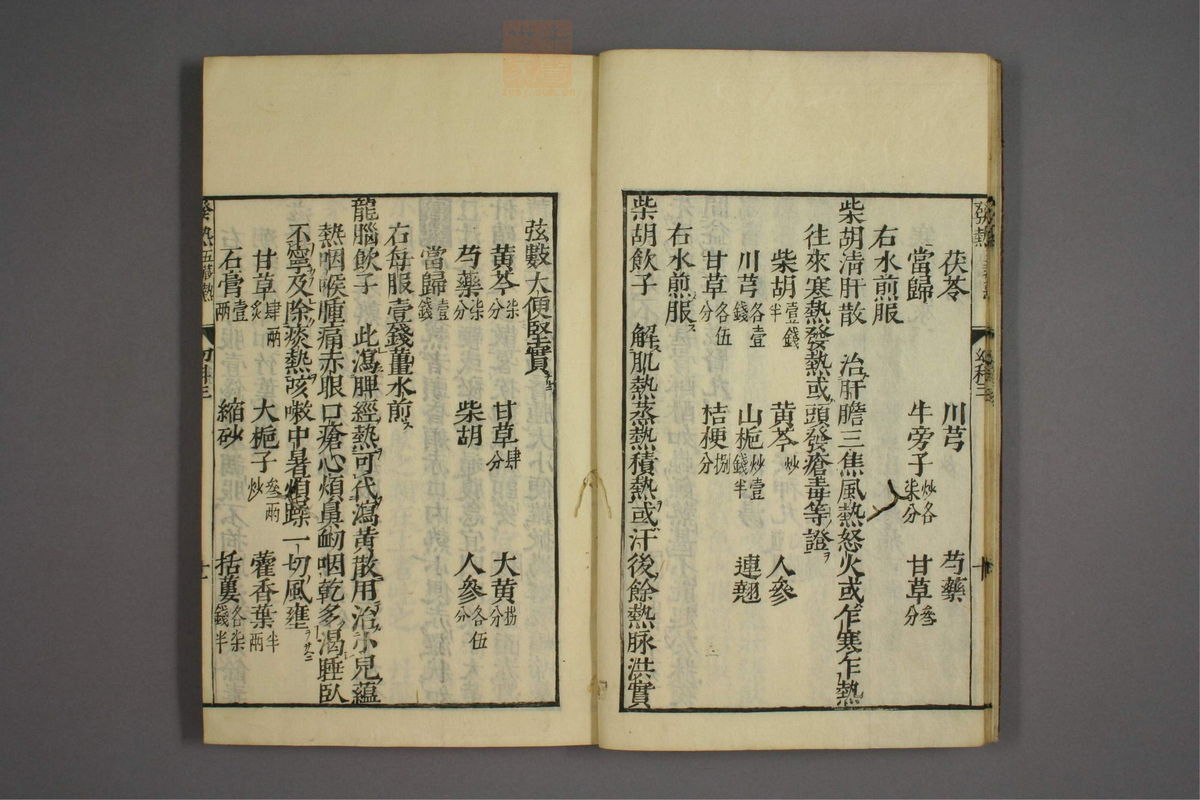 茯苓 川芎 芍藥
當歸 牛旁子炒各柒分 甘草叁分
右水煎服
柴胡淸肝散 治肝膽三焦風熱怒火或乍寒乍熱
往來寒熱發熱或頭發瘡毒等證
柴胡壹錢半 黃芩炒 人參
川芎各壹錢 山梔炒壹錢半 連翹
甘草各伍分 桔梗捌分
右水煎服
柴胡飲子 解肌熱蒸熱積熱或汗後餘熱脉洪實
弦數大便堅實
黃芩柒分 甘草肆分 大黃捌分
芍藥柒分 柴胡 人參各伍分
當歸壹錢
右每服壹錢薑水煎
龍腦飲子 此瀉脾經熱可代瀉黃散用治小兒蘊
熱咽喉腫痛赤眼口瘡心煩鼻衂咽乾多渴睡臥
不寧及除痰熱咳嗽中暑煩躁一切風壅
甘草肆兩炙 大梔子叁兩炒 藿香葉半兩
石膏壹兩 縮砂 括蔞各柒錢半